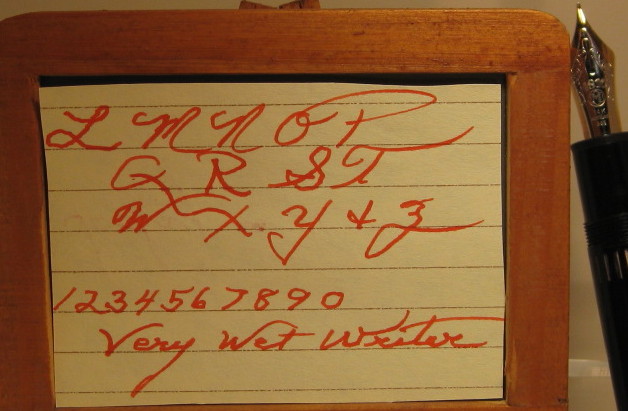 L M N O P
Q R S T
W X Y & Z
1 2 3 4 5 6 7 8 9 0
Very Wet Writer